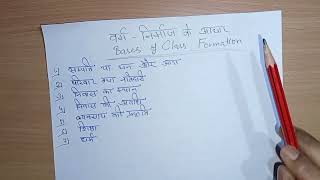 वर्ग - निर्माण के आधार
Bases of Class Formation
1) सम्पत्ति या धन और आय
2) परिवार तथा नातेदारी
3) निवास का स्थान
4) निवास की अवधि
5) व्यवसाय की प्रकृति
6) शिक्षा
7) धर्म